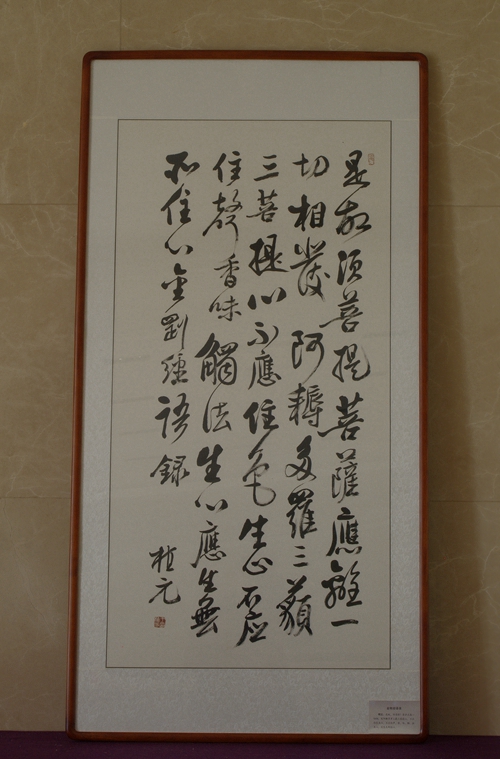 是故須菩提菩薩應離一
切相發阿耨多羅三藐
三菩提心不應住色生心不应
住聲香味觸法生心應生無
所住心金剛經語錄
植元